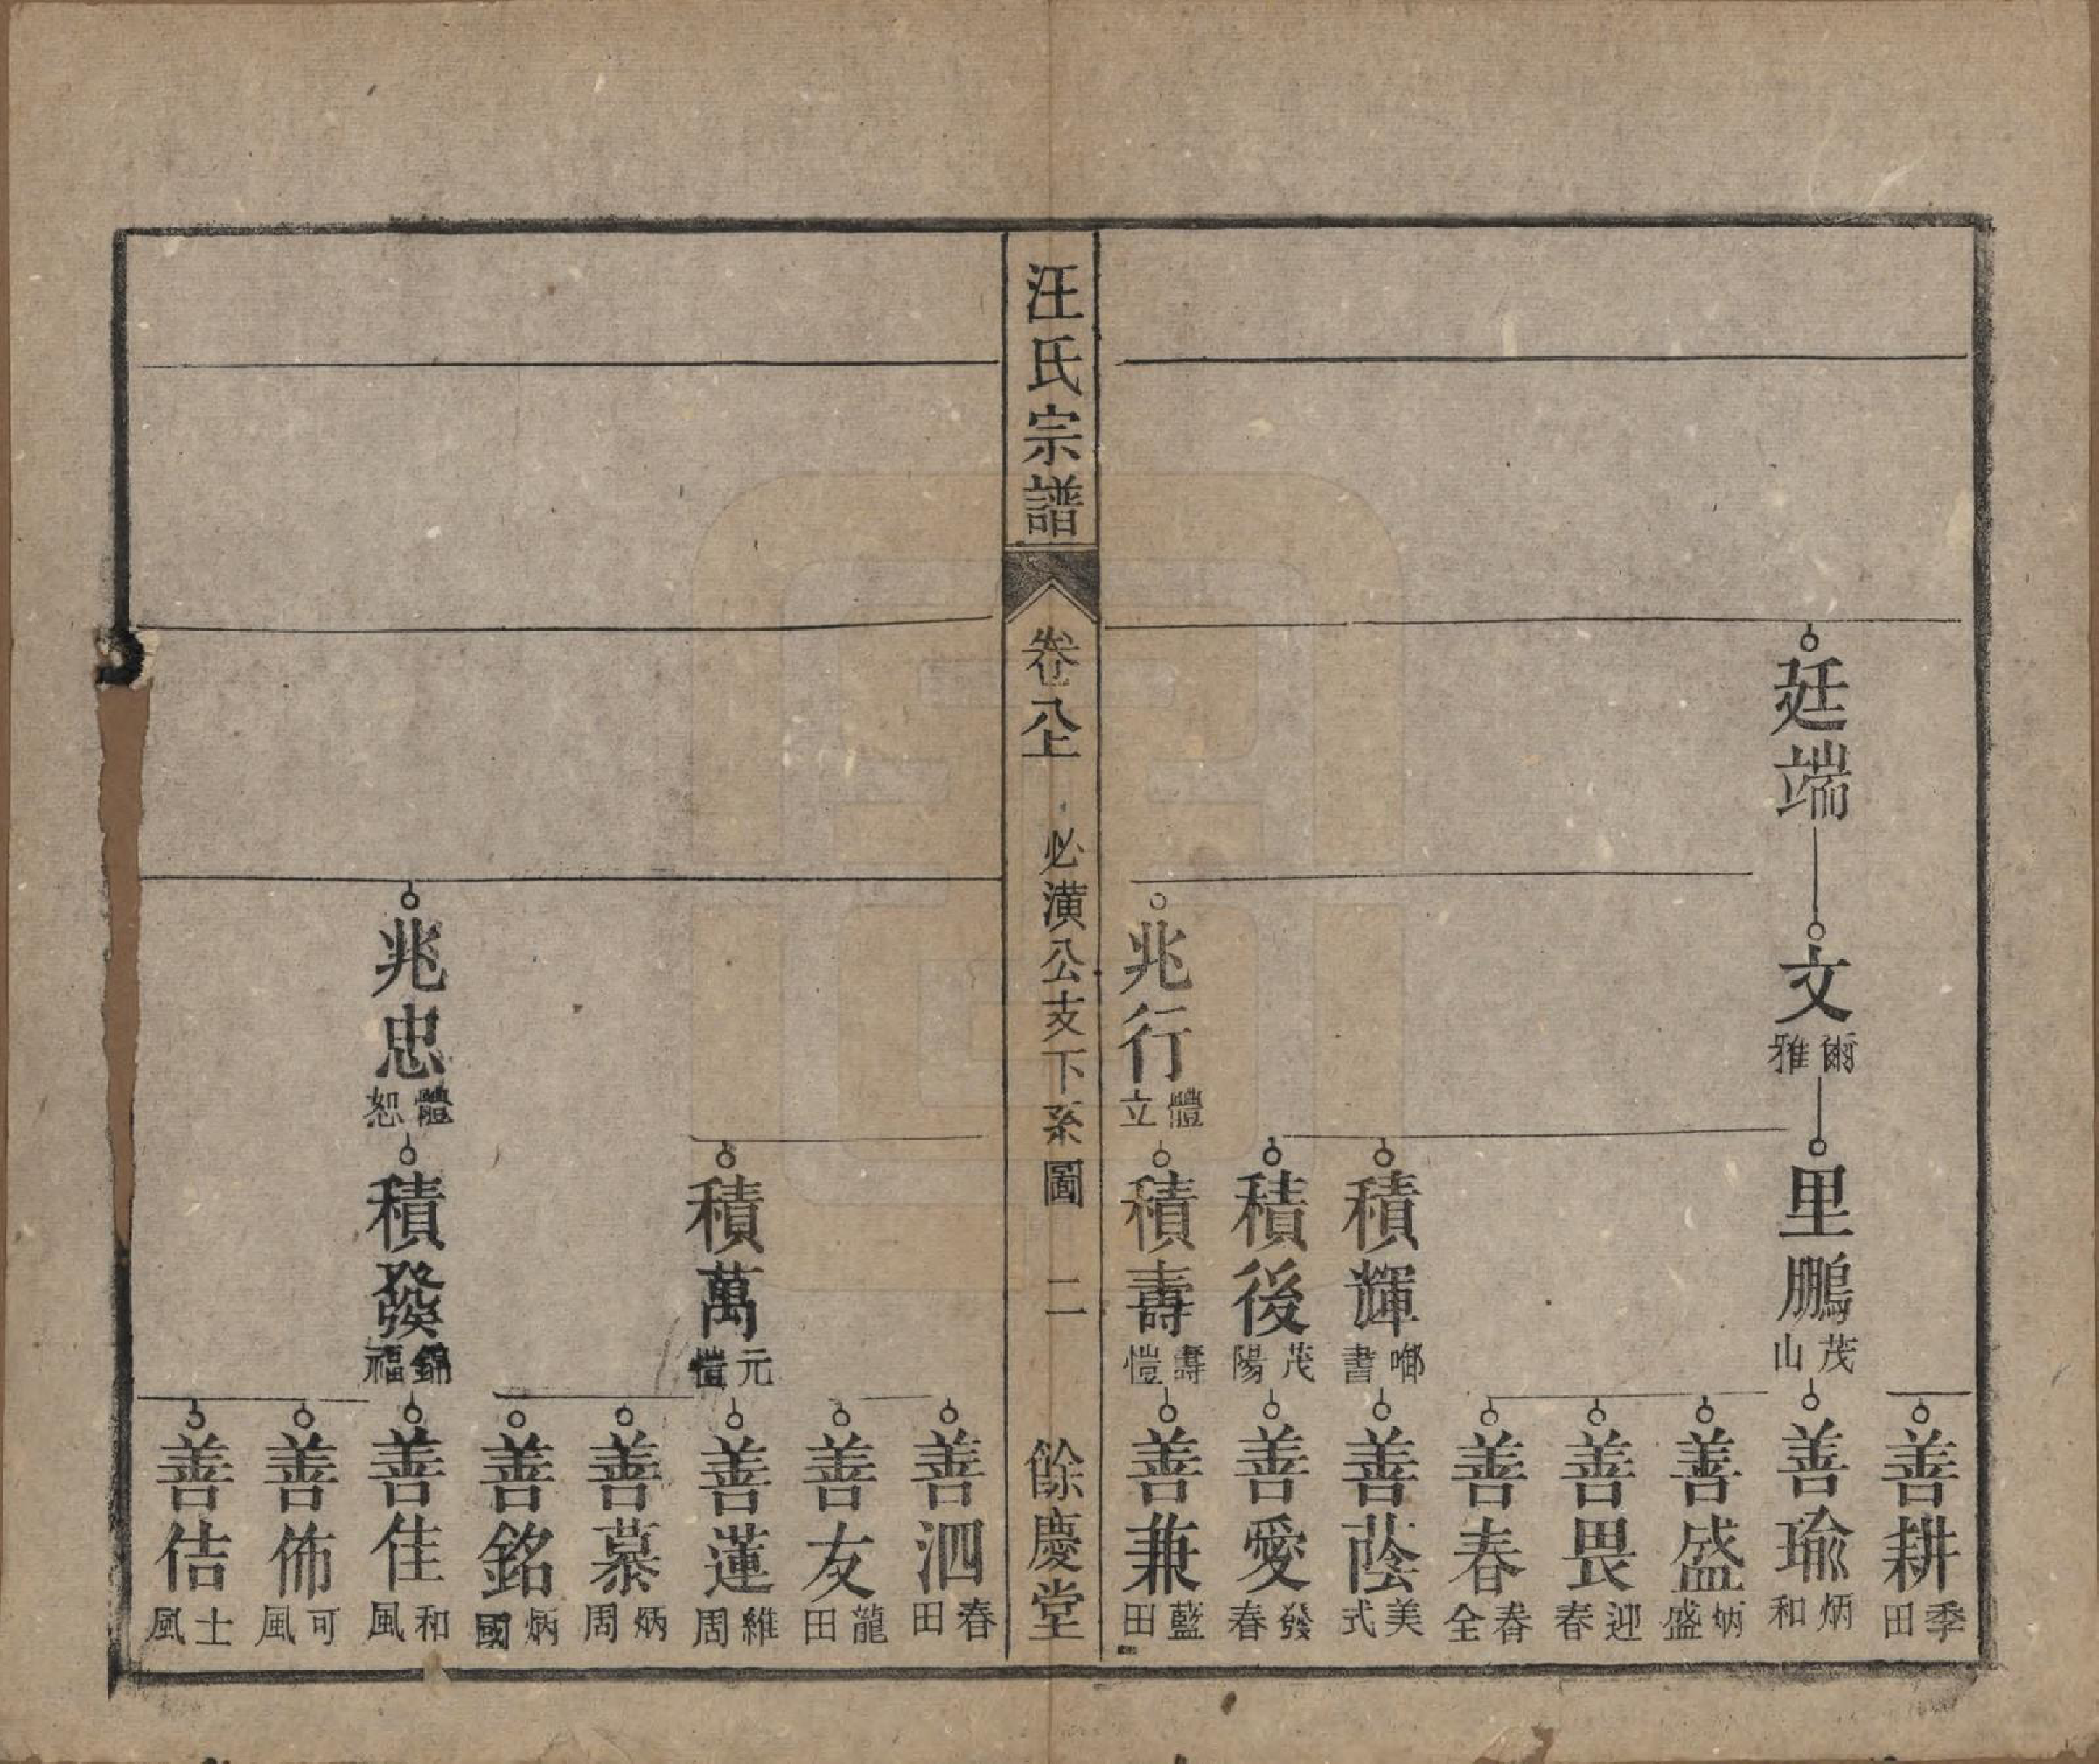 善耕季田
廷端
文爾雅
里鵬茂山
善瑜炳和
善盛炳盛
善畏迎春
善春春全
積輝啷書
善蔭美式
積後茂陽
善愛發春
兆行體立
積壽壽愷
善兼藍田
汪氏宗譜
卷八上
必潢公支下系圖
二
餘慶堂
善泗春田
善友龍田
積萬元愷
善蓮維周
善慕炳周
善銘炳國
兆忠體恕
積發錦福
善佳和風
善佈可風
善佶士風